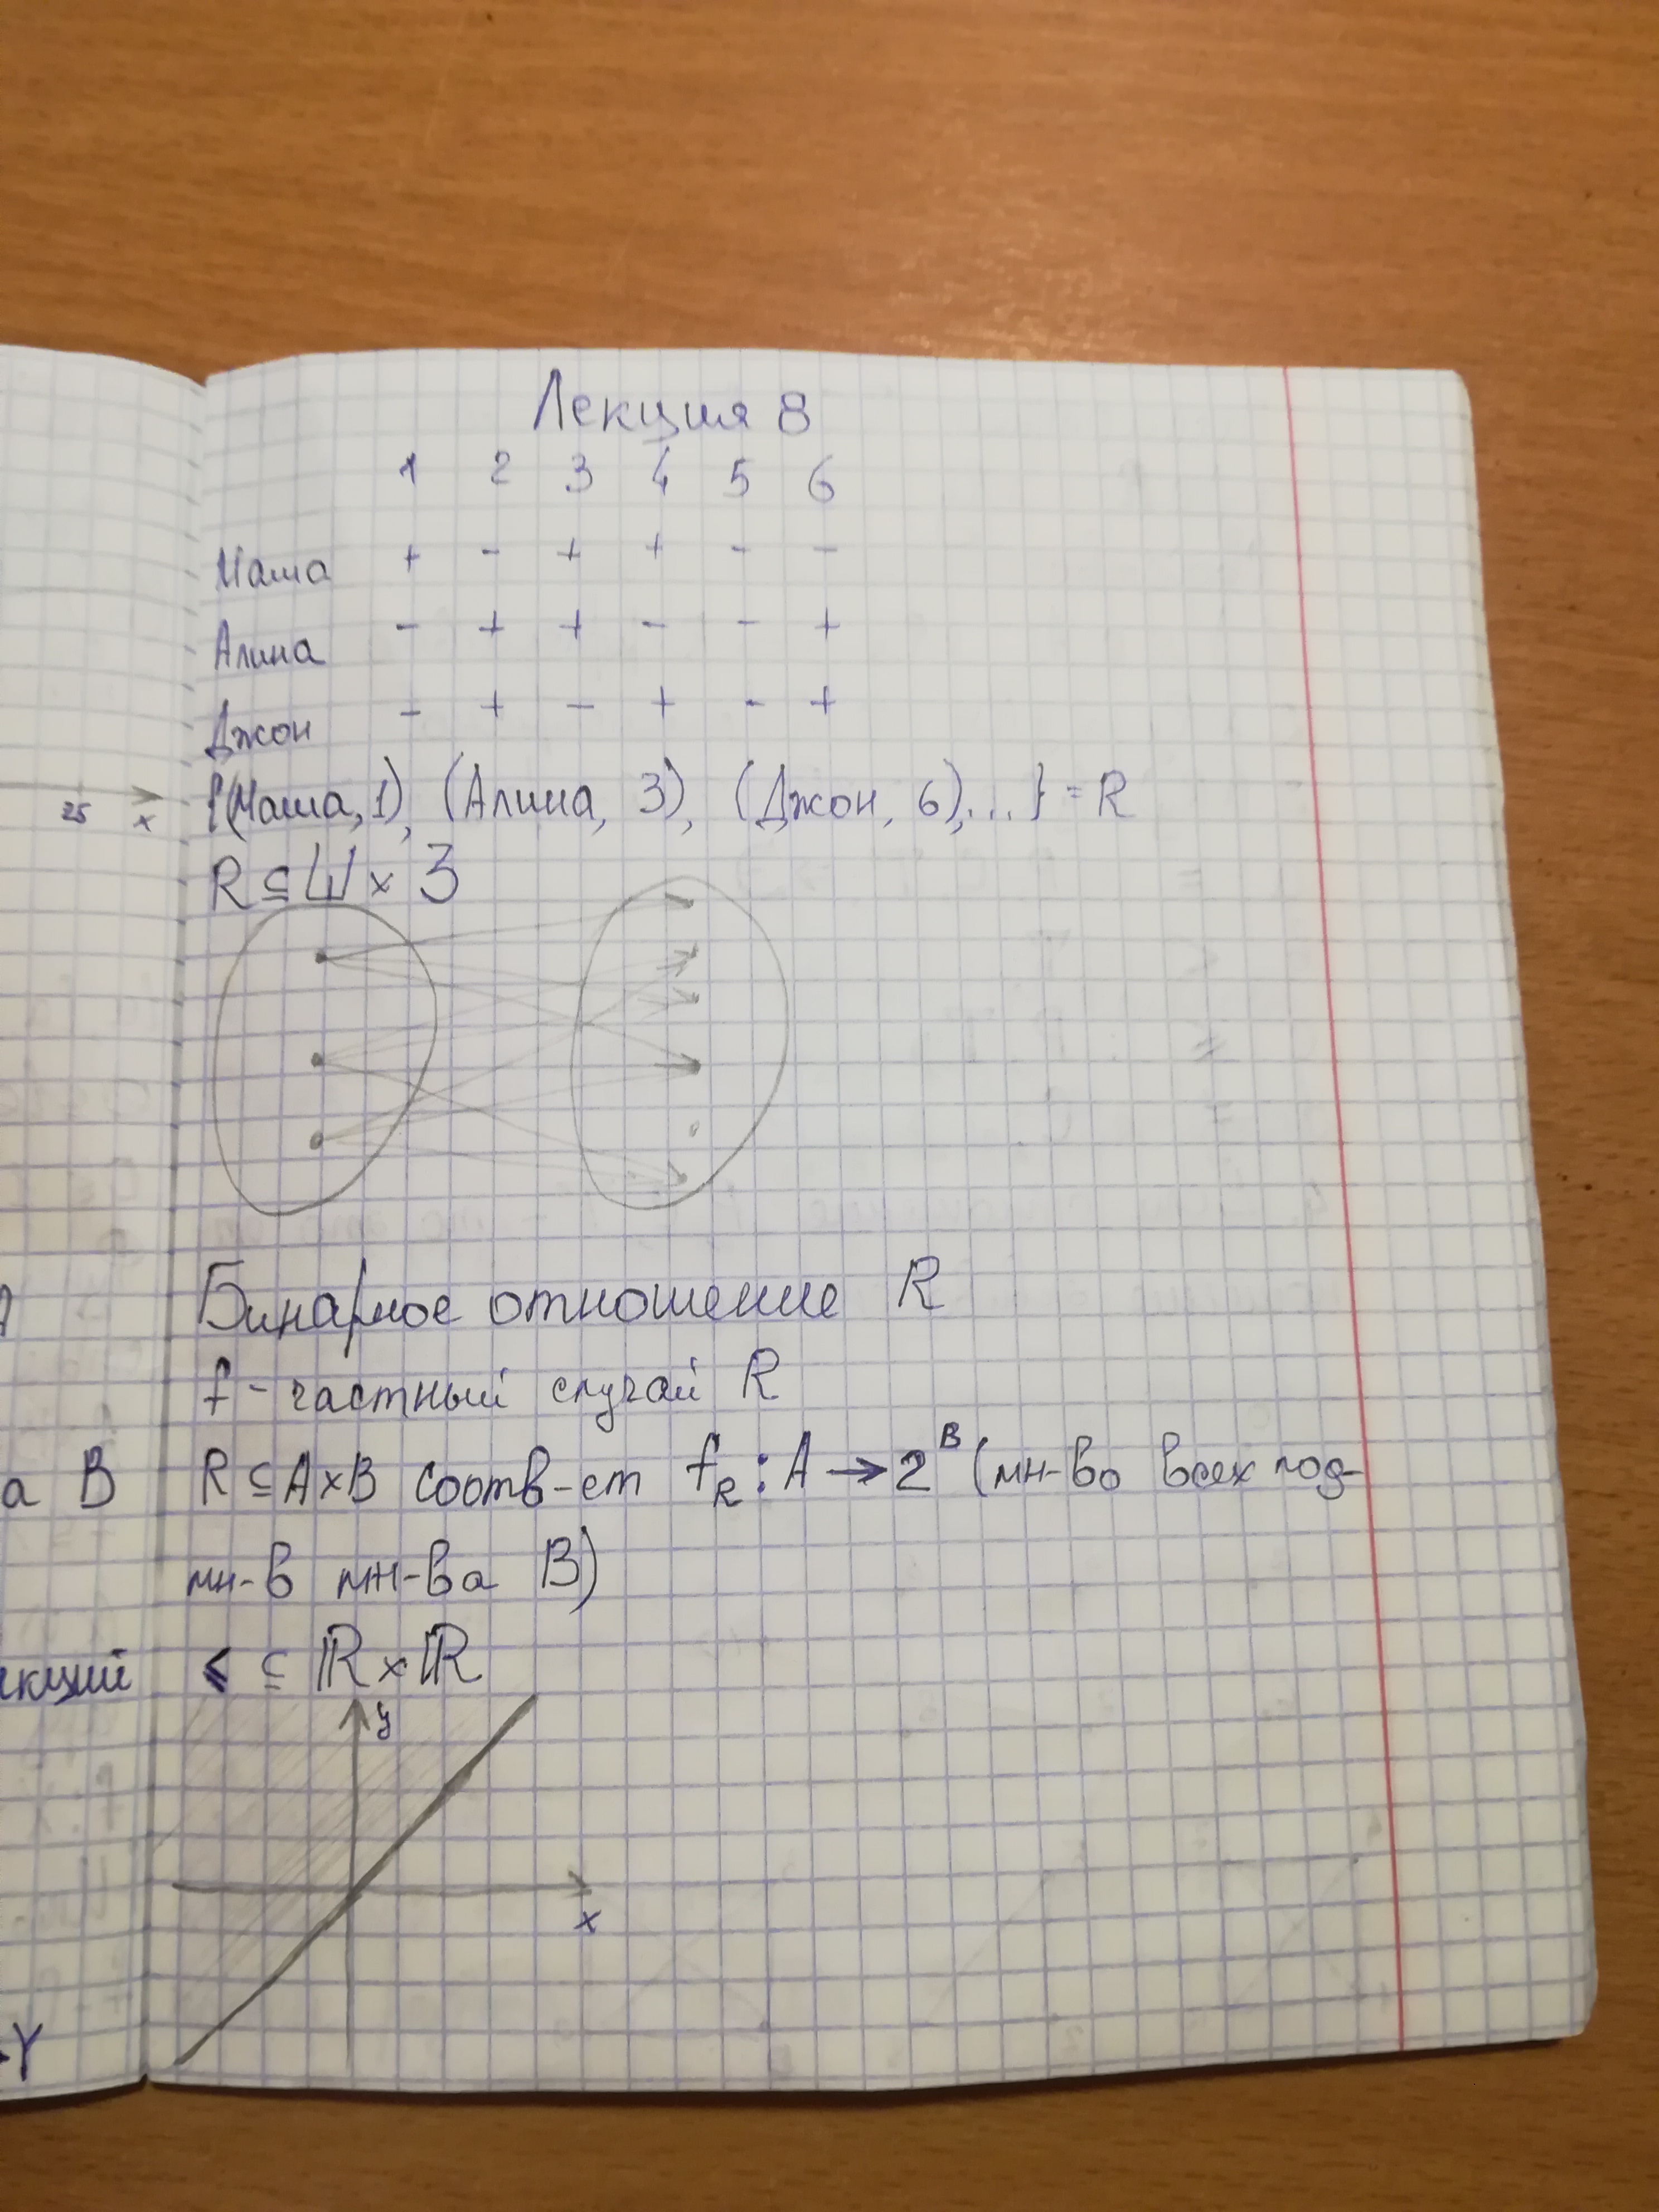 Лекция 8
1 2 3 4 5 6
Маша + - + + - -
Алина - + + - - +
Джон - + - + - +
25 x
{(Маша, 1), (Алина, 3), (Джон, 6),...} = R
R ⊆ Ш × З
Бинарное отношение R
f - частный случай R
а B
R ⊆ A×B соотв-ет f_R : A → 2^B (мн-во всех под-
мн-в мн-ва B)
⩽ ⊆ ℝ × ℝ
y
x
Y